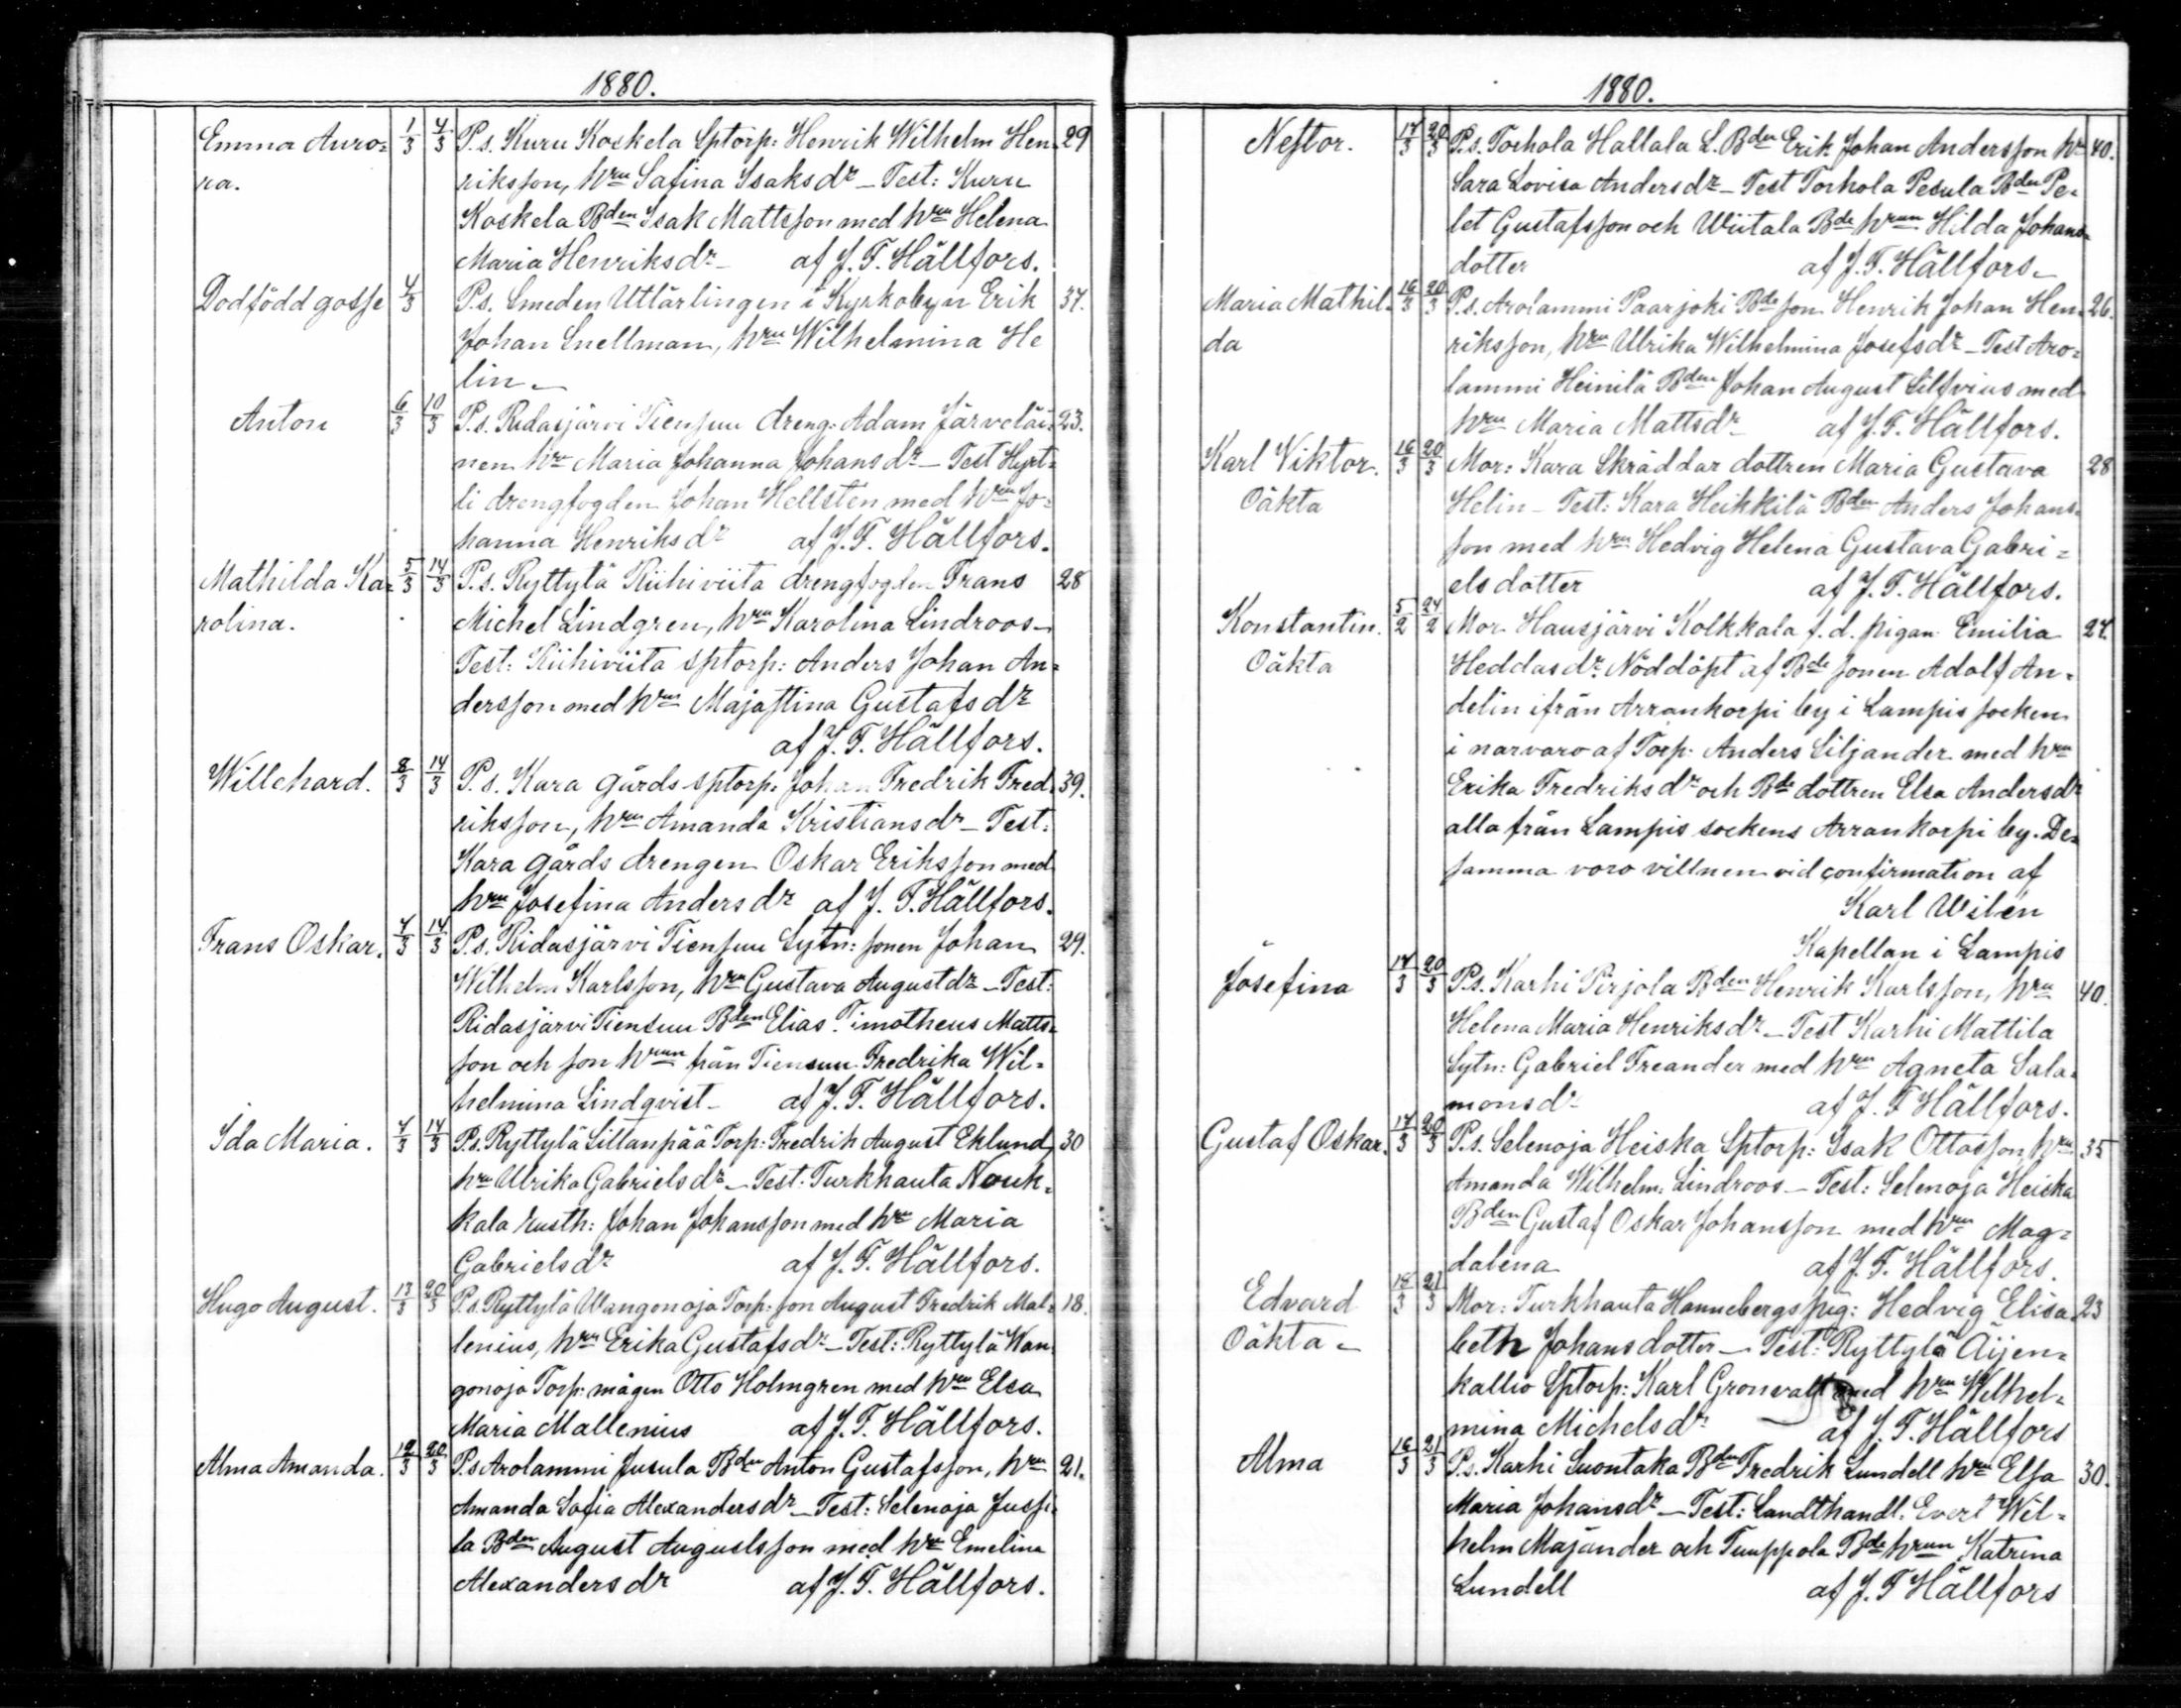 1880.
Emma Auro= 1/3 4/3 P.s. Kuru Koskela Sptorp: Henrik Wilhelm Hen- 29
ra. riksson, hru Safina Isaksdr – Test: Kuru
Koskela Bden Isak Mattsson med hru Helena
Maria Henriksdr – af J. F. Hällfors.
Dödfödd gosse 4/3 P.s. Smeden Utlärlingen i Kyrkobyn Erik 37.
Johan Snellman, hru Wilhelmina He
lin –
Anton 6/3 10/3 P.s. Ridasjärvi Tiensuu dreng: Adam Järveläi= 23.
nen hru Maria Johanna Johansdr – Test Hyrt=
li drengfogden Johan Hellsten med hru Jo=
hanna Henriksdr af J. F. Hällfors.
Mathilda Ka= 5/3 14/3 P.s. Ryttylä Riihiviita drengfogden Frans 28
rolina. Michel Lindgren, hru Karolina Lindroos –
Test: Riihiviita sptorp: Anders Johan An=
dersson med hru Majastina Gustafsdr
af J. F. Hällfors.
Willehard. 8/3 14/3 P.s. Kara gårds sptorp: Johan Fredrik Fred= 39.
riksson, hru Amanda Kristiansdr – Test:
Kara gårds drengen Oskar Eriksson med
hru Josefina Andersdr af J. F. Hällfors.
Frans Oskar. 7/3 14/3 P.s. Ridasjärvi Tiensuu Sytn: sonen Johan 29.
Wilhelm Karlsson, hru Gustava Augustdr – Test:
Ridasjärvi Tiensuu Bden Elias Timotheus Matts=
son och son hrun från Tiensuu Fredrika Wil=
helmina Lindqvist – af J. F. Hällfors.
Ida Maria. 7/3 14/3 P.s. Ryttylä Sillanpää Torp: Fredrik August Eklund, 30
hru Ulrika Gabrielsdr – Test: Turkhauta Nouk=
kala rusth: Johan Johansson med hru Maria
Gabrielsdr af J. F. Hällfors.
Hugo August. 13/3 20/3 P.s. Ryttylä Wangonoja Torp: son August Fredrik Mal= 18.
lenius, hru Erika Gustafsdr – Test: Ryttylä Wan
gonoja Torp: mågen Otto Holmgren med hru Elsa
Maria Mallenius af J. F. Hällfors.
Alma Amanda. 12/3 20/3 P.s Arolammi Jusula Bden Anton Gustafsson, hru 21.
Amanda Sofia Alexandersdr – Test: Selenoja Jussi=
la Bden August Augustsson med hru Emelina
Alexandersdr af J. F. Hällfors.
1880.
Nestor. 17/3 20/3 P.s. Torhola Hallala L. Bden Erik Johan Andersson hr 40.
Sara Lovisa Andersdr – Test Torhola Pesula Bden Pe=
let Gustafsson och Wiitala Bde hrun Hilda Johans=
dotter af J. F. Hällfors –
Maria Mathil= 16/3 20/3 P.s. Arolammi Paarjoki Bde son Henrik Johan Hen= 26.
da riksson, hru Ulrika Wilhelmina Josefsdr – Test Aro=
lammi Heinilä Bden Johan August Silfvius med
hru Maria Mattsdr – af J. F. Hällfors.
Karl Viktor. 16/3 20/3 Mor: Kara Skräddar dottren Maria Gustava 28
Oäkta Helin – Test: Kara Heikkilä Bden Anders Johans=
son med hru Hedvig Helena Gustava Gabri=
elsdotter af J. F. Hällfors.
Konstantin. 5/2 24/2 Mor Hausjärvi Kolkkala f. d. pigan Emilia 24.
Oäkta Heddasdr Nöddöpt af Bde sonen Adolf An=
delin ifrån Arrankorpi by i Lampis socken
i narvaro af Torp: Anders Siljander med hru
Erika Fredriksdr och Bde dottren Elsa Andersdr
alla från Lampis sockens Arrankorpi by. De=
samma voro villnen vid confirmation af
Karl Wilén
Kapellan i Lampis
Josefina 17/3 20/3 P.s. Karhi Pirjola Bden Henrik Karlsson, hru 40.
Helena Maria Henriksdr – Test Karhi Mattila
Sytn: Gabriel Freander med hru Agneta Sala=
monsdr af J. F Hällfors.
Gustaf Oskar. 17/3 20/3 P.s. Selenoja Heiska Sptorp: Isak Ottosson, hru 35
Amanda Wilhelm: Lindroos – Test: Selenoja Heiska
Bden Gustaf Oskar Johansson med hru Mag=
dalena af J. F. Hällfors.
Edvard 18/3 21/3 Mor: Turkhauta Hannebergs pig: Hedvig Elisa= 23
Oäkta – beth Johansdotter – Test: Ryttylä Äijen=
kallio Sptorp: Karl Gronvall med hru Wilhel=
mina Michelsdr af J. F. Hällfors
Alma 16/3 21/3 P.s. Karhi Suontaka Bden Fredrik Lundell hru Elsa 30.
Maria Johansdr – Test: Landthandl: Evert Wil=
helm Majander och Tuuppola Bde hrun Katrina
Lundell af J. F Hällfors